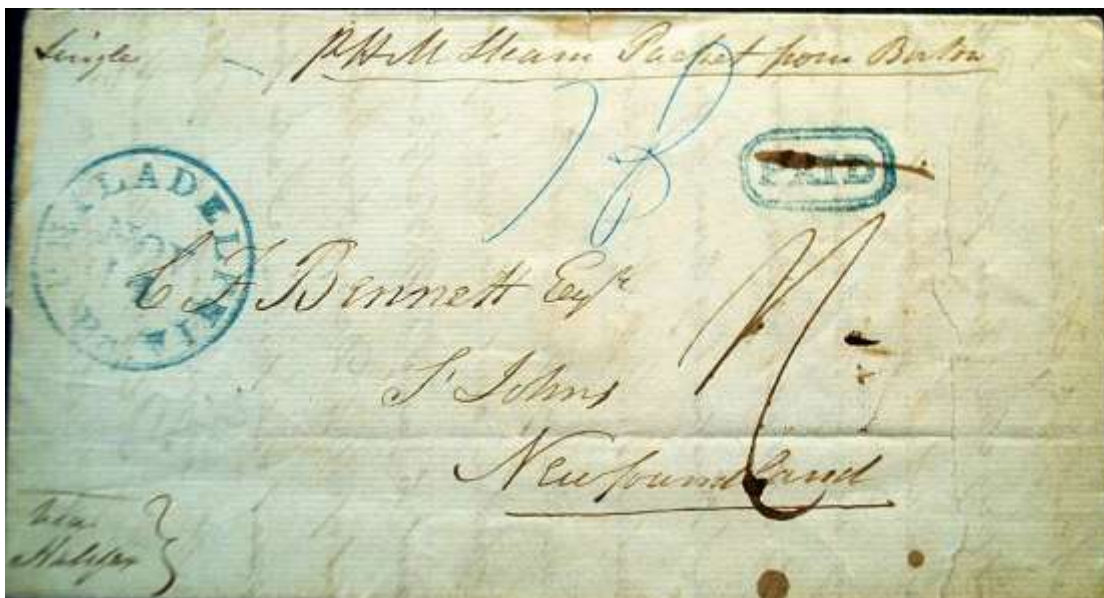 Single
p H M Steam Packet from Boston
18
PAID
PHILADELPHIA
NOV
C F Bennett Esqr
St Johns
Newfoundland
Via
Halifax